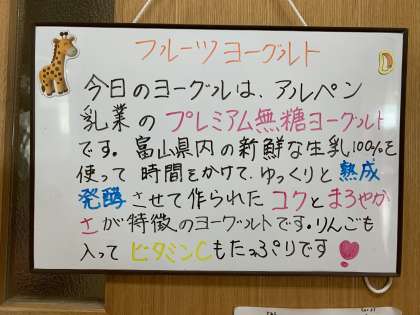 フルーツヨーグルト
今日のヨーグルは、アルペン
乳業のプレミアム無糖ヨーグルト
です。富山県内の新鮮な生乳100%を
使って時間をかけて、ゆっくりと熟成
発酵させて作られたコクとまろやか
さが特徴のヨーグルトです。りんごも
入ってビタミンCもたっぷりです